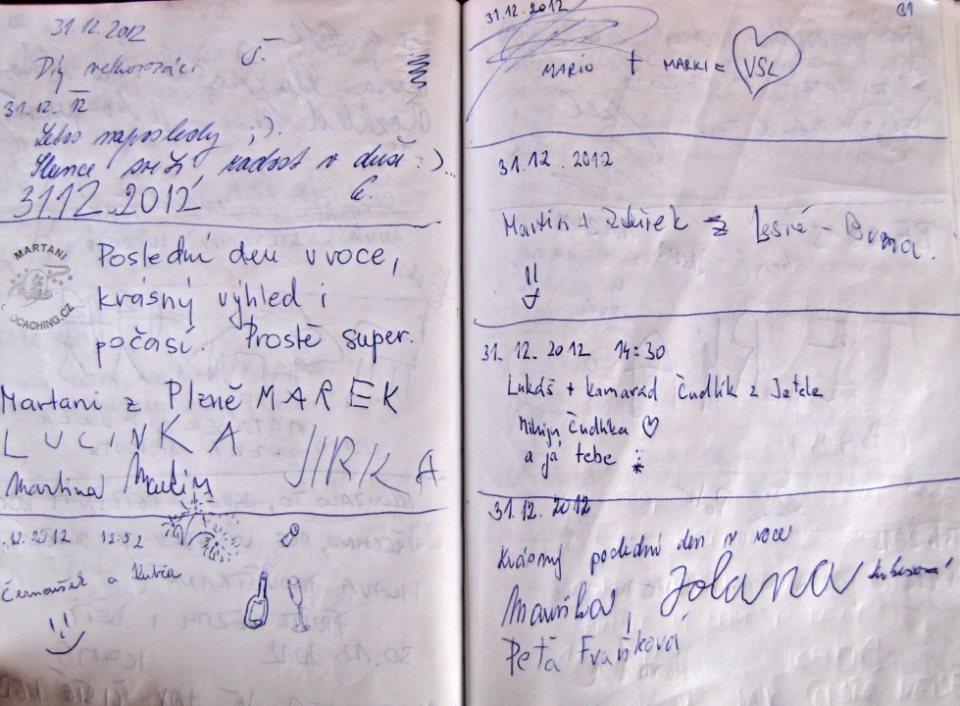 31.12.2012
Díky
J.
31.12.12
Letos naposledy ;).
Slunce svítí, radost v duši :)...
31.12.2012
MARTANI
OCACHING.CZ
Poslední den v roce,
krásný výhled i
počasí. Prostě super.
Martani z Plzně MAREK
LUCINKA JIRKA
Martina Martin
.12.2012 12:52
Černoušek a
31.12.2012
31
MARIO + MARKI = VSL
31.12.2012
Martin + Zdeněk z Lesné - Brna.
31.12.2012 14:30
Lukáš + kamarád Čudlík z Jetele
Miluju Čudlíka
a já tebe
31.12.2012
Krásný poslední den v roce
Maruška, Jolana
Peťa Fraňková